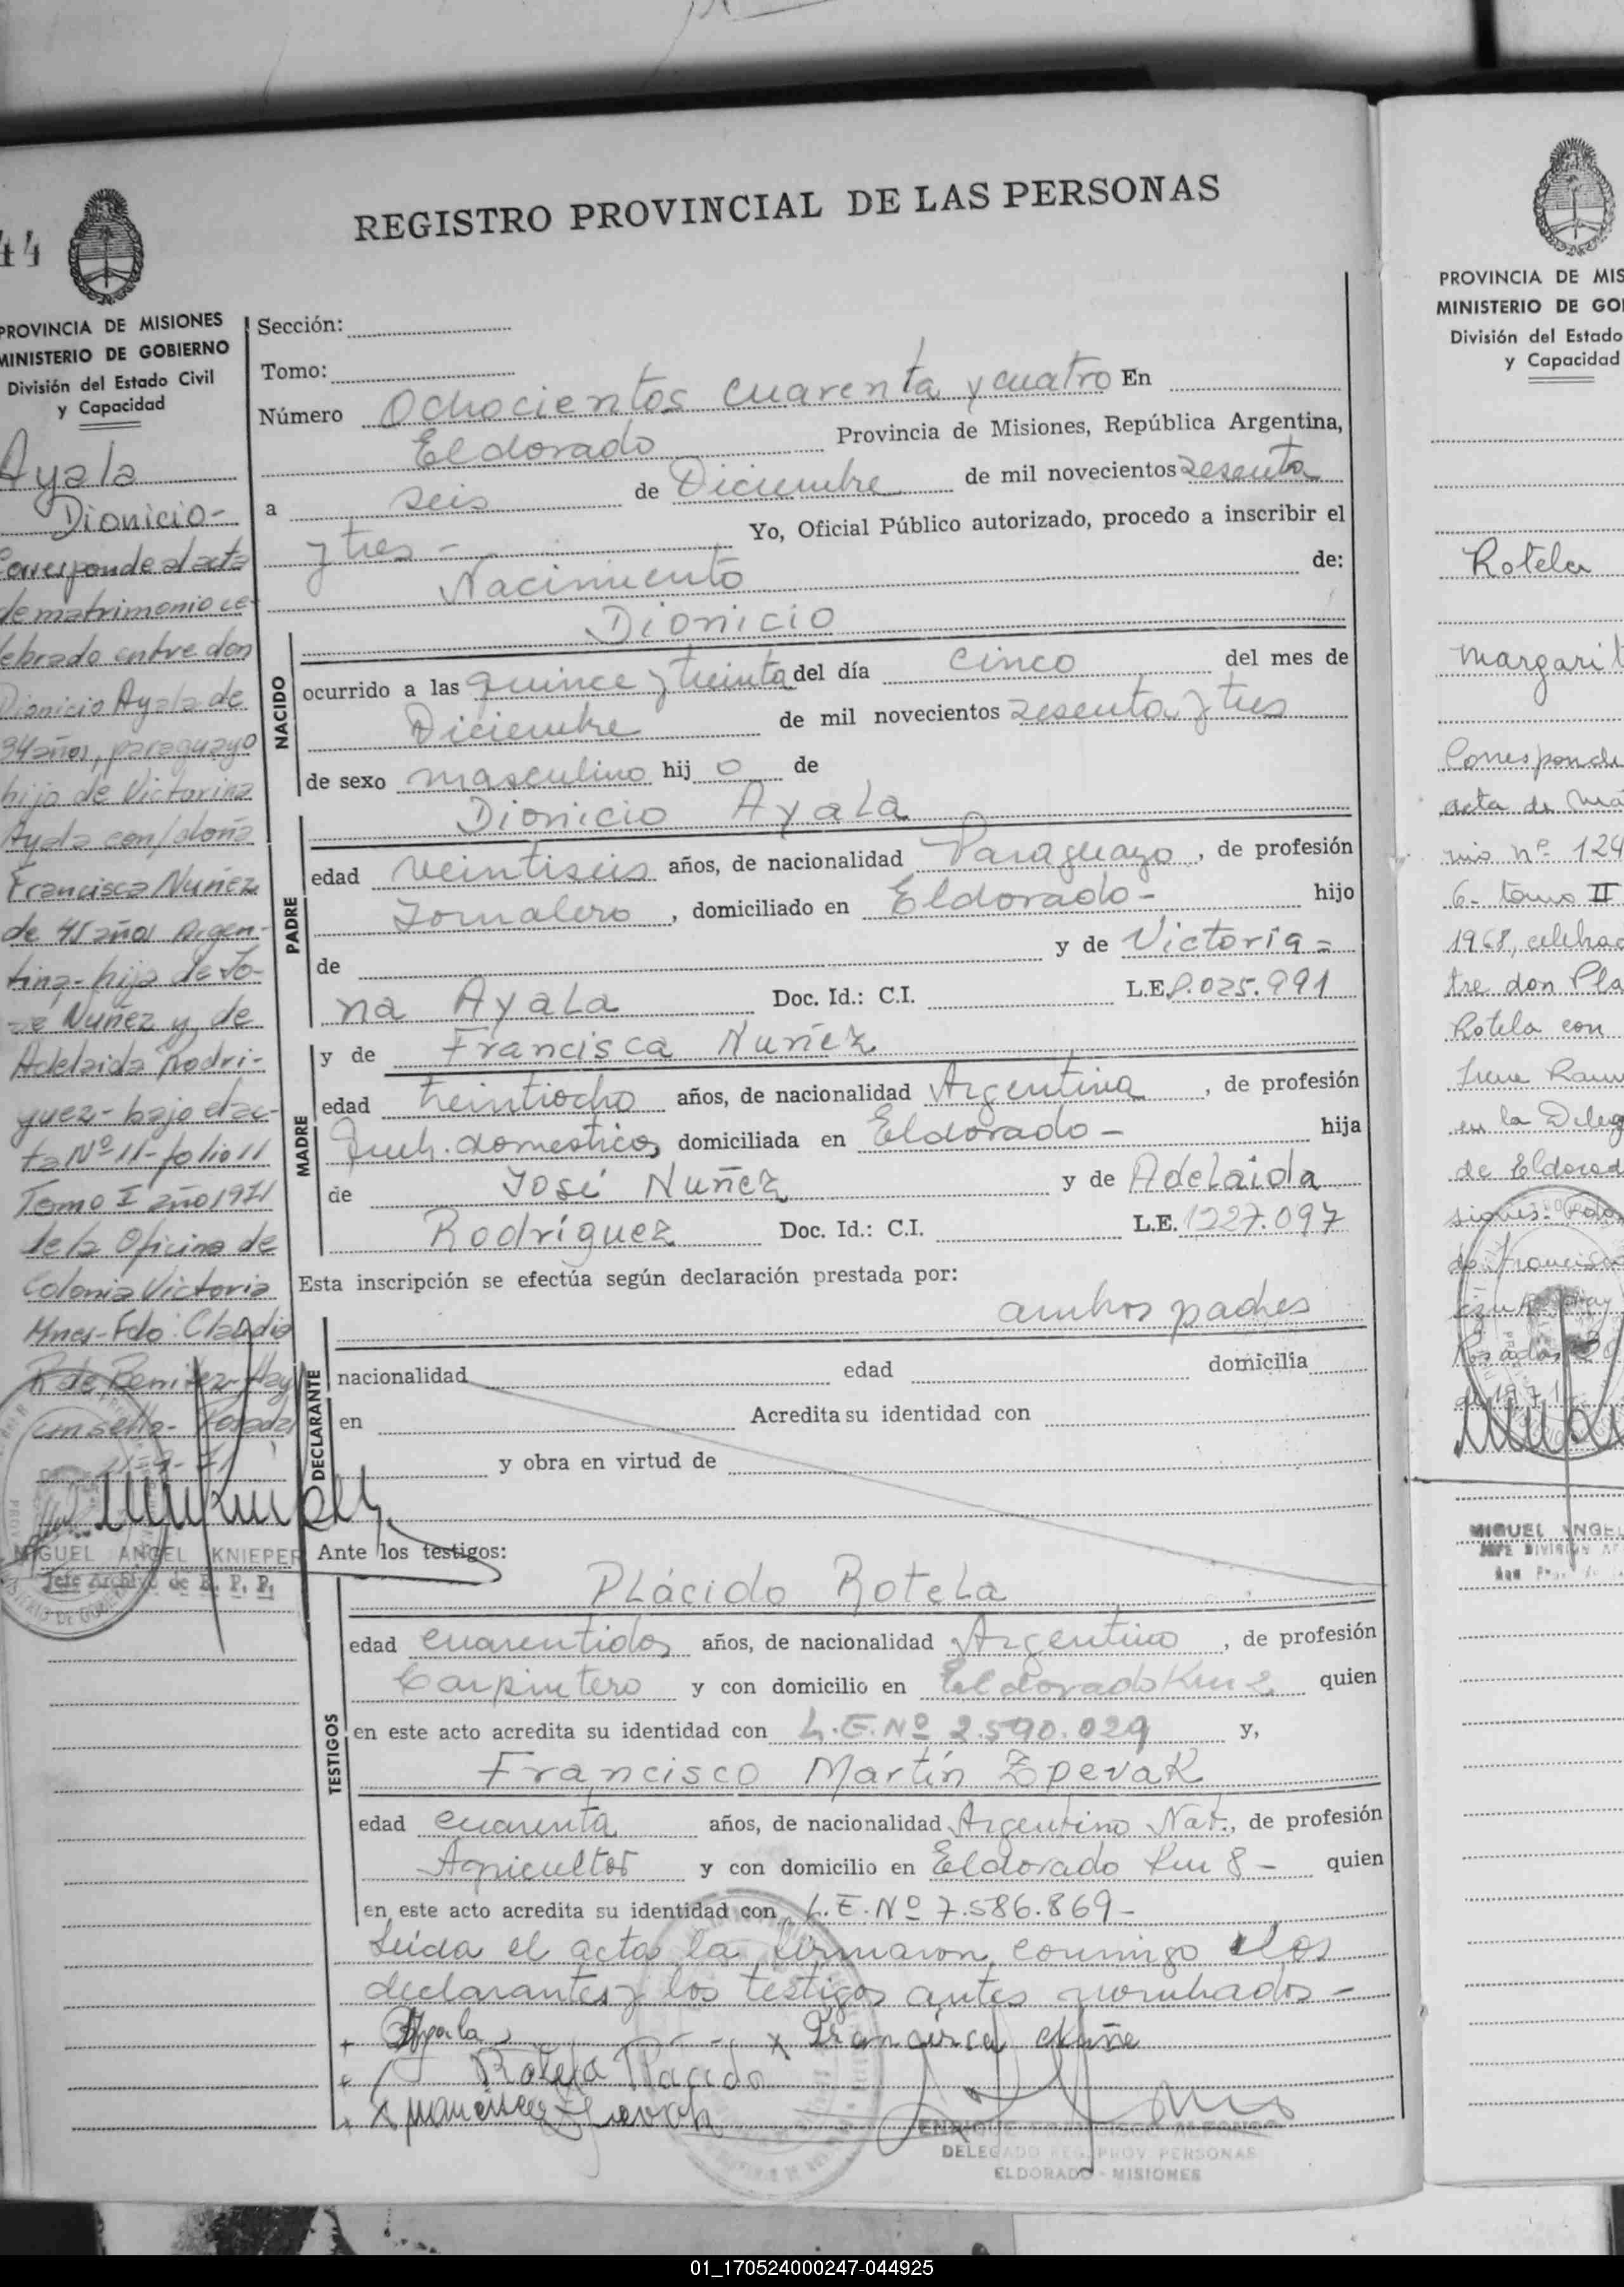 REGISTRO PROVINCIAL DE LAS PERSONAS
44
PROVINCIA DE MISIONES
MINISTERIO DE GOBIERNO
División del Estado Civil
y Capacidad
Ayala
Dionicio-
Corresponde al acta
de matrimonio ce-
lebrado entre don
Dionicio Ayala de
34 años, paraguayo
hijo de Victorina
Ayala con/doña
Francisca Nuñez
de 45 años Argen-
tina- hija de Jo-
sé Nuñez y de
Adelaida Rodri-
guez- bajo el ac-
ta Nº 11- folio 11
Tomo I año 1971
de la Oficina de
Colonia Victoria
Mnes- Fdo: Claudio
R de Benitez- Hay
un sello- Posadas
MIGUEL ANGEL KNIEPER
Jefe Archivo de R. P. P.
Sección:
Tomo:
Número Ochocientos cuarenta y cuatro En
Eldorado Provincia de Misiones, República Argentina,
a seis de Diciembre de mil novecientos sesenta
y tres - Yo, Oficial Público autorizado, procedo a inscribir el
Nacimiento de:
Dionicio
NACIDO
ocurrido a las quince y treinta del día cinco del mes de
Diciembre de mil novecientos sesenta y tres
de sexo masculino hijo de
Dionicio Ayala
PADRE
edad veintiseis años, de nacionalidad Paraguayo, de profesión
Jornalero, domiciliado en Eldorado- hijo
de y de Victoria=
na Ayala Doc. Id.: C.I. L.E. 8.025.991
y de Francisca Nuñez
MADRE
edad treintiocho años, de nacionalidad Argentina, de profesión
Queh. domesticos, domiciliada en Eldorado- hija
de José Nuñez y de Adelaida
Rodríguez Doc. Id.: C.I. L.E. 1227.097
Esta inscripción se efectúa según declaración prestada por:
ambos padres
DECLARANTE
nacionalidad edad domicilia
en Acredita su identidad con
y obra en virtud de
Ante los testigos:
Plácido Rotela
TESTIGOS
edad cuarentidos años, de nacionalidad Argentino, de profesión
Carpintero y con domicilio en Eldorado Km 2 quien
en este acto acredita su identidad con L.E. Nº 2.590.029 y,
Francisco Martín Zpevak
edad cuarenta años, de nacionalidad Argentino Nat., de profesión
Agricultor y con domicilio en Eldorado Km 8- quien
en este acto acredita su identidad con L.E. Nº 7.586.869-
Leida el acta la firmaron conmigo los
declarantes y los testigos antes nombrados-
+ Ayala x Francisca Nuñe
Rotela Placido
DELEGADO REG. PROV PERSONAS
ELDORADO - MISIONES
PROVINCIA DE MIS
MINISTERIO DE GO
División del Estado
y Capacidad
Rotela
Margarit
Corresponde
acta de
nio nº 124
6- tomo II
1968, celebrad
tre don Pla
Rotela con
Irene Ram
en la Deleg
de Eldorad
MIGUEL ANGEL
01_170524000247-044925